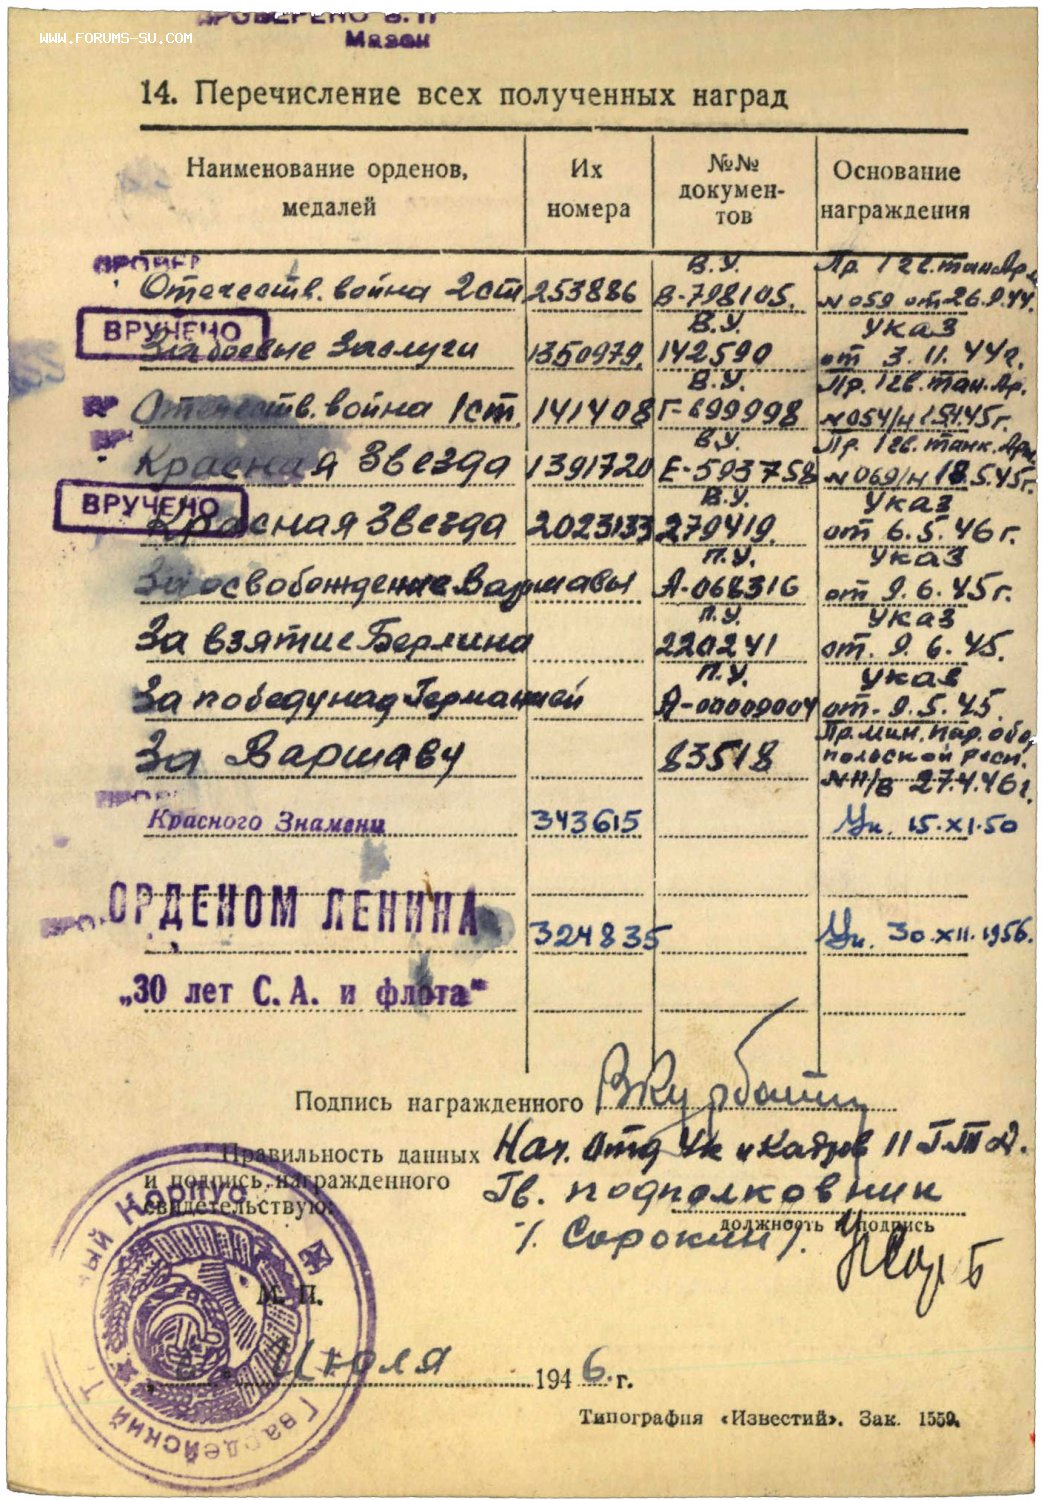 ПРОВЕРЕНО
Мазан
WWW.FORUMS-SU.COM
14. Перечисление всех полученных наград
Наименование орденов, медалей | Их номера | №№ докумен-тов | Основание награждения
Отечеств. война 2ст | 253886 | В.У. В-798105. | Пр. 1 гв. тан. Арм. №059 от 26.9.44.
ВРУЧЕНО
За боевые Заслуги | 1350979. | В.У. 142590 | Указ от 3.11.44г.
Отечеств. война 1ст. | 141408 | В.У. Г-699998 | Пр. 1 гв. Тан. Ар. №054/н 45г.
Красная Звезда | 1391720 | В.У. Е-593758 | Пр. 1 гв. танк. Арм. №069/н 18.5.45г.
ВРУЧЕНО
Красная Звезда | 2023133 | В.У. 279419. | Указ от 6.5.46г.
За освобождение Варшавы | П.У. А-068316 | Указ от 9.6.45г.
За взятие Берлина | П.У. 220241 | Указ от. 9.6.45.
За победу над Германией | П.У. А-00009004 | Указ от. 9.5.45.
За Варшаву | 83518 | Пр. Мин. Нар. обо. польской Респ. №11/в 27.4.46г.
Красного Знамени | 343615 | Ук. 15.XI.50
ОРДЕНОМ ЛЕНИНА | 324835 | Ук. 30.XII.1956.
„30 лет С. А. и флота"
Подпись награжденного
Правильность данных Нач. Отд Ук и Кадров 11 Г.Т.
и подпись награжденного Гв. подполковник
свидетельствую:
должность и подпись
/. Сорокин /.
М. П.
Июля 1946. г.
Гвардейский Корпус
Типография «Известий». Зак. 1559.